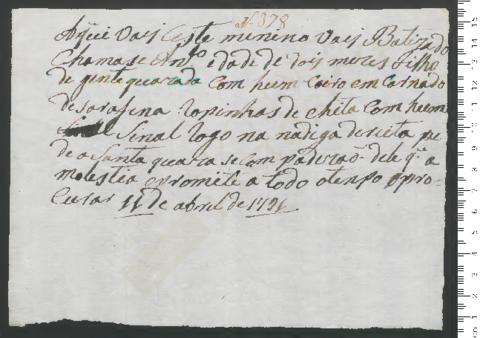 Nº 378
Aqui vai este minino vai Batizado
Chamase Antº edade de dois mezes Filho
de gente quazada com hum Coiro em carnado
de sarafina Ropinhas de chita com hum
Sinal logo na nadiga dereita pe
de a Santa quaza se com padeza de le q̃ a
molestia e promete a todo o tempo o pro-
curar 11 de abril de 1791